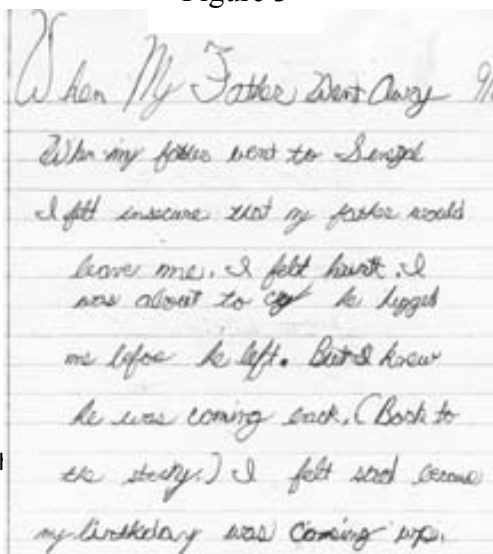 When My Father Went Away
When my father went to Senegal
I felt insecure that my father would
leave me. I felt hurt. I
was about to cry he hugged
me before he left. But I knew
he was coming back. (Back to
the story.) I felt sad because
my birthday was coming up.